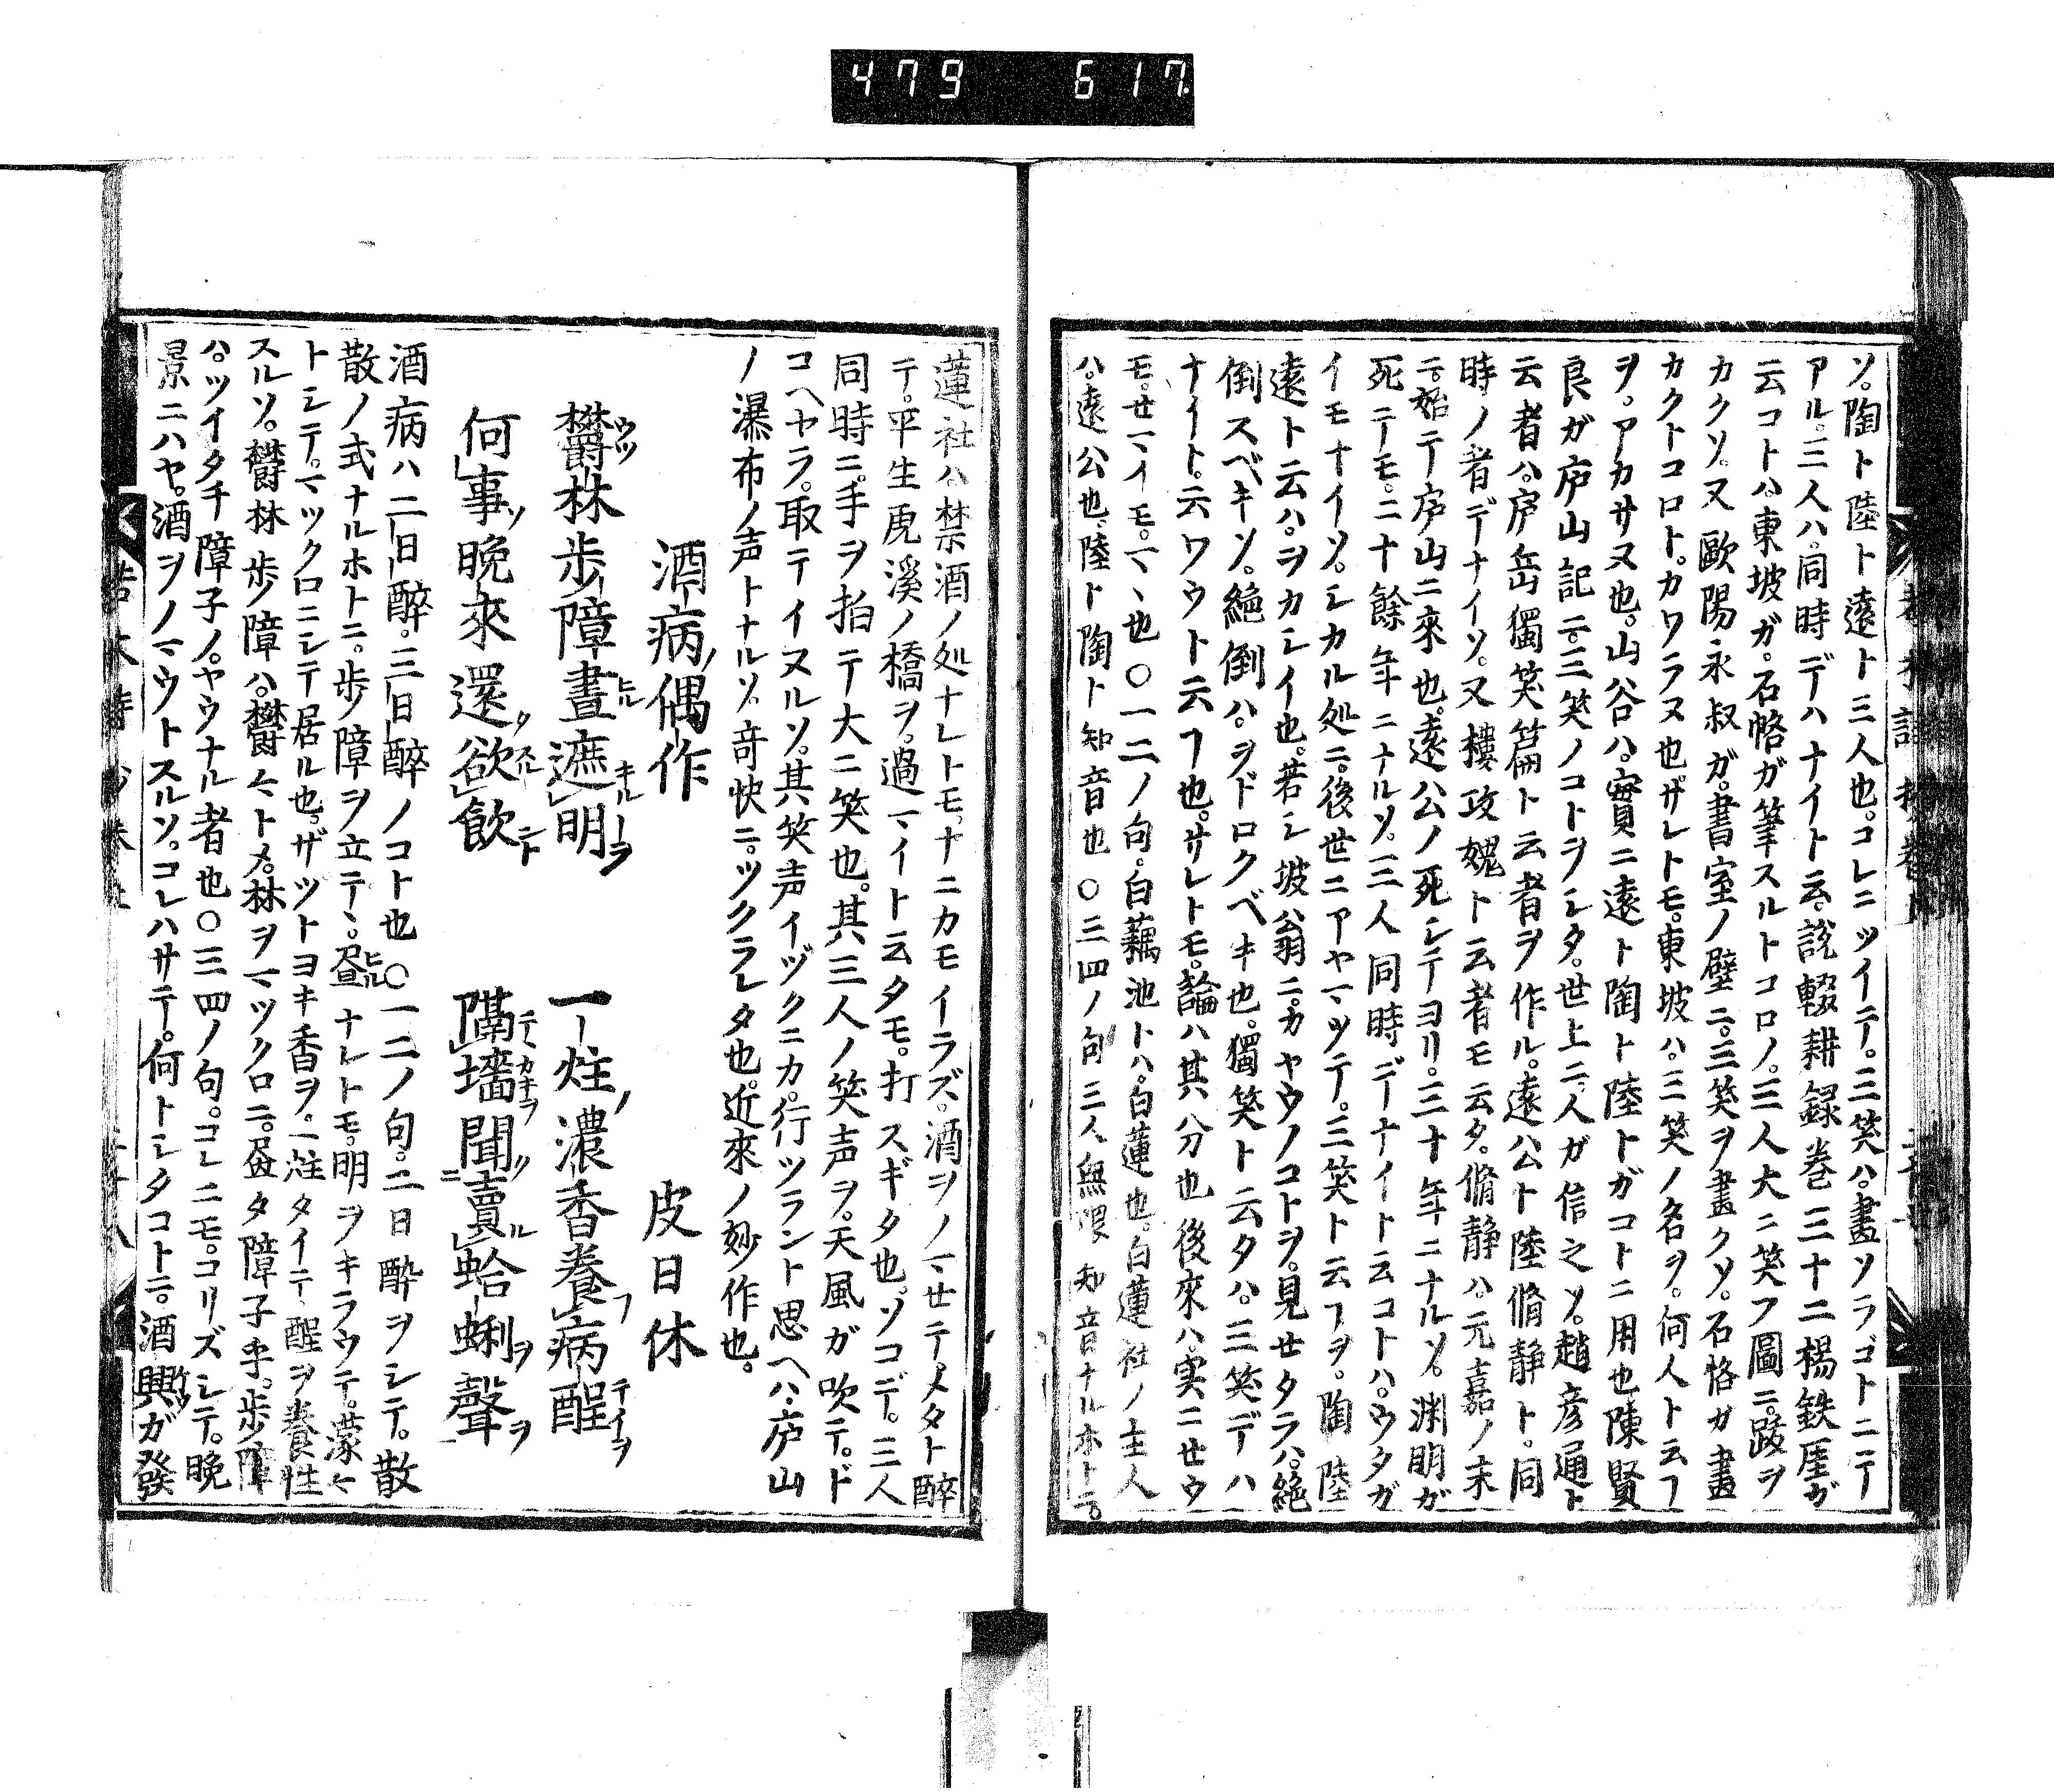 479 617
ソ。陶ト陸ト遠ト三人也。コレニツイテ。三笑ハ。畫ソラゴトニテ
アル。三人ハ。同時デハナイト云。說輟耕録巻三十二楊鉄厓ガ
云コトハ。東坡ガ。石恪ガ筆スルトコロノ。三人大ニ笑フ圖ニ。跋ヲ
カクソ。又歐陽永叔ガ。書室ノ壁ニ。三笑ヲ畫クソ。石恪ガ畫
カクトコロト。カワラヌ也。ザレトモ。東坡ハ。三笑ノ名ヲ。何人ト云フ
ヲ。アカサヌ也。山谷ハ。實ニ遠ト陶ト陸トガコトニ用也陳賢
良ガ庐山記ニ。三笑ノコトヲシタ。世上ニ。人ガ信之ソ。趙彦通ト
云者ハ。庐岳獨笑篇ト云者ヲ作ル。遠公ト陸脩静ト。同
時ノ者デナイソ。又樓攻媿ト云者モ云タ。脩静ハ。元嘉ノ末
ニ。始テ庐山ニ來也。遠公ノ死シテヨリ。三十年ニナルソ。渊明ガ
死テモ。二十餘年ニナルソ。三人同時デナイト云コトハ。ウタガ
イモナイソ。シカル処ニ。後世ニアヤマツテ。三笑ト云フヲ。陶陸
遠ト云ハ。ヲカシイ也。若シ坡翁ニ。カヤウノコトヲ。見セタラハ。絶
倒スベキソ。絶倒ハ。ヲドロクベキ也。獨笑ト云タハ。三笑デハ
ナイト。云ワウト云フ也。サレトモ。論ハ其分也後來ハ。実ニセウ
モ。せマイモ。マヽ也〇一二ノ句。白藕池トハ。白蓮也。白蓮社ノ主人
ハ。遠公也。陸ト陶ト知音也〇三四ノ句三人無限知音ナルホトニ。
蓮社ハ。禁酒ノ処ナレトモ。ナニカモイラズ。酒ヲノマせテメタト醉
テ。平生虎溪ノ橋ヲ。過マイト云タモ。打スギタ也。ソコデ。三人
同時ニ。手ヲ拍テ大ニ笑也。其三人ノ笑声ヲ。天風ガ吹テ。ド
コヘヤラ。取テイヌルソ。其笑声イヅクニカ。行ツラント思ヘハ。庐山
ノ瀑布ノ声トナルソ。竒快ニ。ツクラレタ也。近來ノ妙作也。
酒病ノ偶作 皮日休
欝林歩障晝遮明 一炷濃香養病酲
何事晩來還欲飲 隔墻聞賣蛤蜊聲
酒病ハ二日醉。三日醉ノコト也〇一二ノ句。二日醉ヲシテ。散
散ノ式ナルホトニ。歩障ヲ立テヽ。昼ナレトモ。明ヲキラウテ。濛々
トシテ。マツクロニシテ居ル也。ザツトヨキ香ヲ。一炷タイテ酲ヲ養性
スルソ。欝林歩障ハ。欝々トメ。林ヲマツクロニ。畵タ障子乎。歩障
ハ。ツイタチ障子ノ。ヤウナル者也〇三四ノ句。コレニモ。コリズシテ。晩
景ニハヤ。酒ヲノマウトスルソ。コレハサテ。何トシタコトニ。酒興ガ發